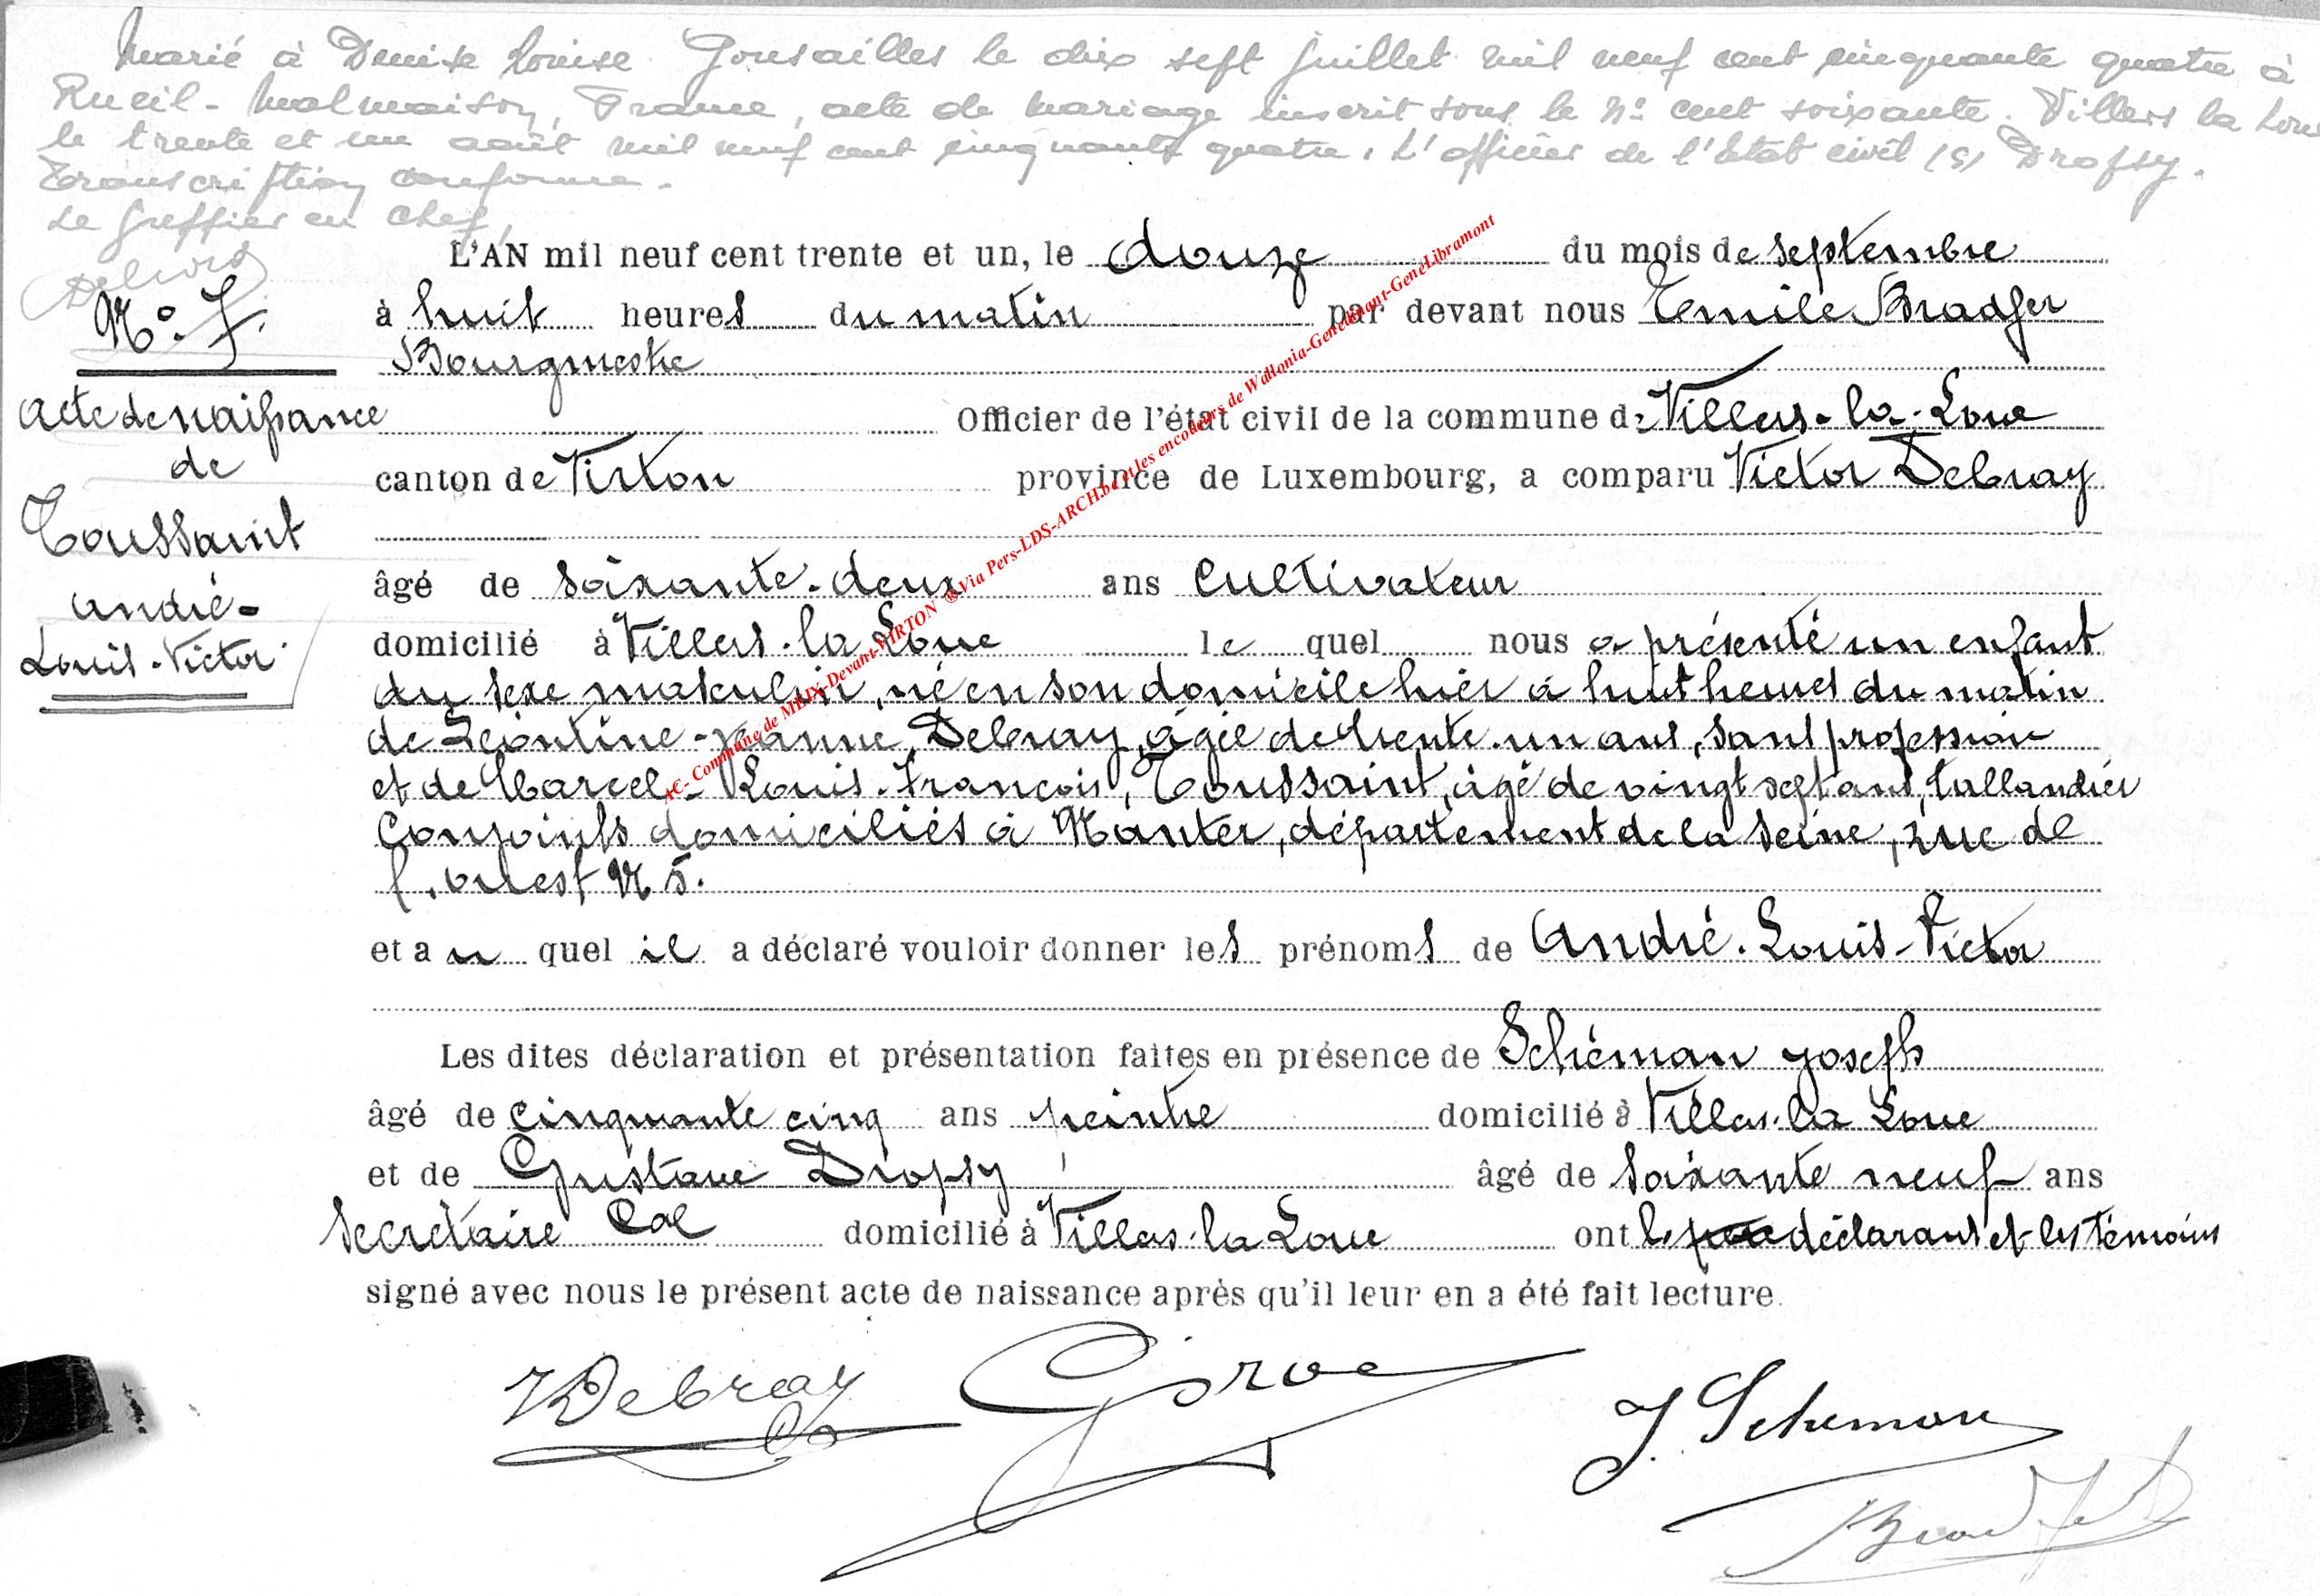 Marié à Denise Louise Gousailles le dix sept juillet mil neuf cent cinquante quatre à
Rueil-Malmaison, France, acte de mariage inscrit sous le N° cent soixante. Villers la Loue
le trente et un août mil neuf cent cinquante quatre. L'officier de l'état civil (s) Dropsy.
Transcription conforme.
Le Greffier en Chef,
L'AN mil neuf cent trente et un, le douze du mois de septembre
N° 7.
à huit heures du matin par devant nous Emile Bradfer
Bourgmestre
Acte de naissance
Officier de l'état civil de la commune de Villers-la-Loue
de
canton de Virton province de Luxembourg, a comparu Victor Debray
Toussaint
André-
Louis-Victor
âgé de soixante-deux ans cultivateur
domicilié à Villers-la Loue le quel nous a présenté un enfant
du sexe masculin, né en son domicile hier à huit heures du matin
de Léontine-Jeanne, Debray, âgée de trente-un ans, sans profession
et de Marcel-Louis-François, Toussaint, âgé de vingt sept ans, taillandier
conjoints domiciliés à Nanter, département de la Seine, rue de
l'ouest N 5.
et au quel il a déclaré vouloir donner les prénoms de André-Louis-Victor
Les dites déclaration et présentation faites en présence de Schéman Joseph
âgé de cinquante cinq ans peintre domicilié à Villers-la Loue
et de Gustave Dropsy âgé de soixante neuf ans
secrétaire Cal domicilié à Villers-la Loue ont le déclarant et les témoins
signé avec nous le présent acte de naissance après qu'il leur en a été fait lecture.
VDebray
J. Scheman
Bradfer
AC- Commune de MEIX-Devant-VIRTON ®Via Pers-LDS-ARCH.be et les encodeurs de Wallonia-Genedinant-GeneLibramont